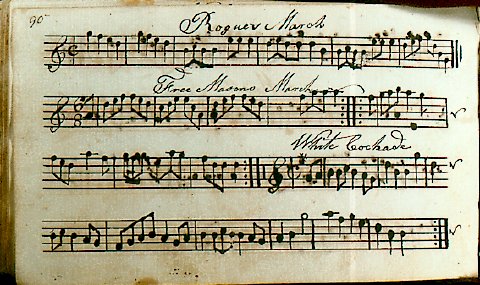 90
Rogues March
Free Masons March
White Cockade